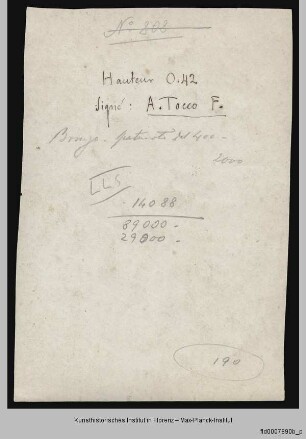 Nº 803
Hauteur 0.42
Signé: A. Tocco F.
Bronze - del 400 -
2000
LLS
14088
89000 -
29000 -
190
Kunsthistorisches Institut in Florenz – Max-Planck-Institut
fld0007990b_p